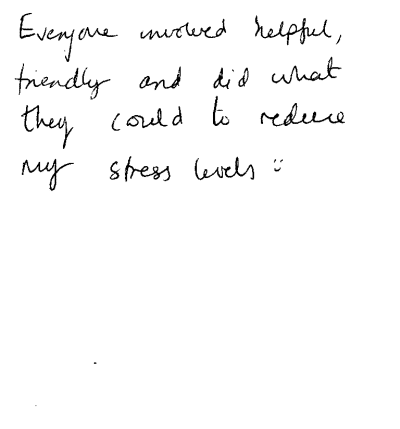 Everyone involved helpful,
friendly and did what
they could to reduce
my stress levels :)